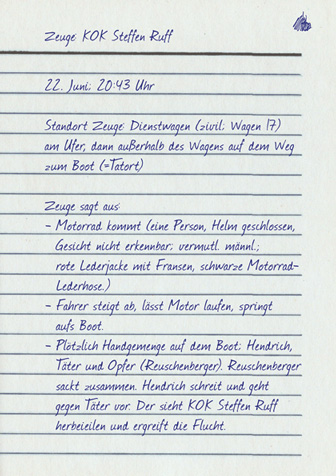 Zeuge KOK Steffen Ruff
22. Juni; 20:43 Uhr
Standort Zeuge: Dienstwagen (zivil; Wagen 17)
am Ufer, dann außerhalb des Wagens auf dem Weg
zum Boot (=Tatort)
Zeuge sagt aus:
- Motorrad kommt (eine Person, Helm geschlossen,
Gesicht nicht erkennbar; vermutl. männl.;
rote Lederjacke mit Fransen, schwarze Motorrad-
Lederhose.)
- Fahrer steigt ab, lässt Motor laufen, springt
aufs Boot.
- Plötzlich Handgemenge auf dem Boot; Hendrich,
Täter und Opfer (Reuschenberger). Reuschenberger
sackt zusammen. Hendrich schreit und geht
gegen Täter vor. Der sieht KOK Steffen Ruff
herbeieilen und ergreift die Flucht.